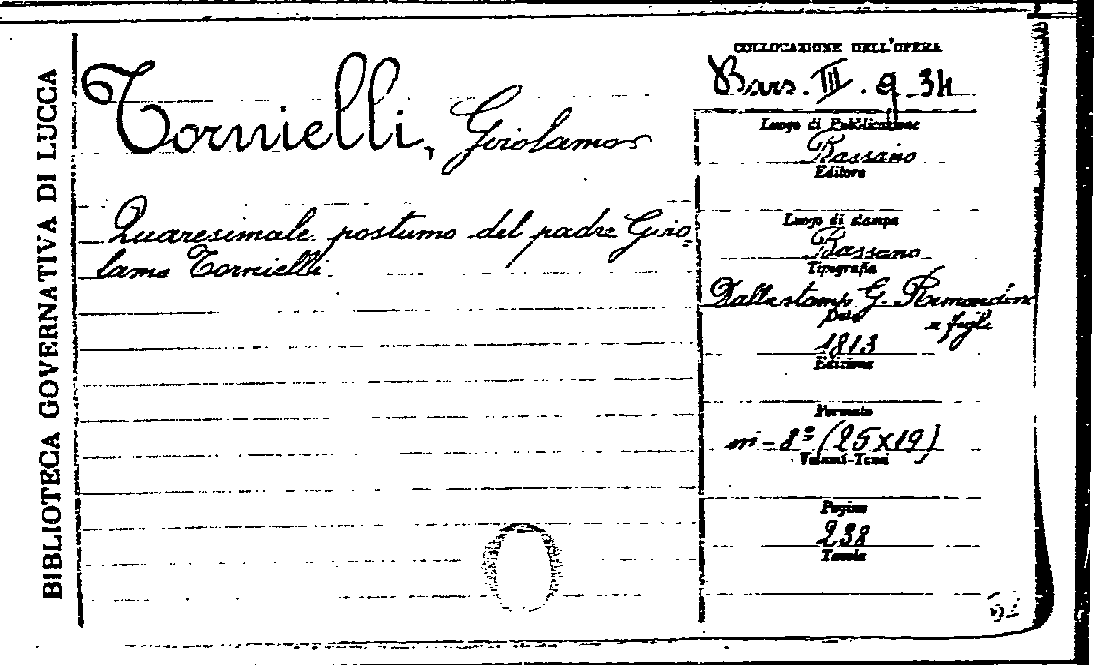 BIBLIOTECA GOVERNATIVA DI LUCCA
Tornielli, Girolamo
Quaresimale postumo del padre Giro-
lamo Tornielli.
COLLOCAZIONE DELL'OPERA
Bars. III. 9. 34
Luogo di Pubblicazione
Bassano
Editore
Luogo di stampa
Bassano
Tipografia
Dalla stamp. G. Remondini
e figli
Data
1813
Edizione
Formato
in-8º (25x19)
Volumi-Tomi
Pagine
238
Tavole